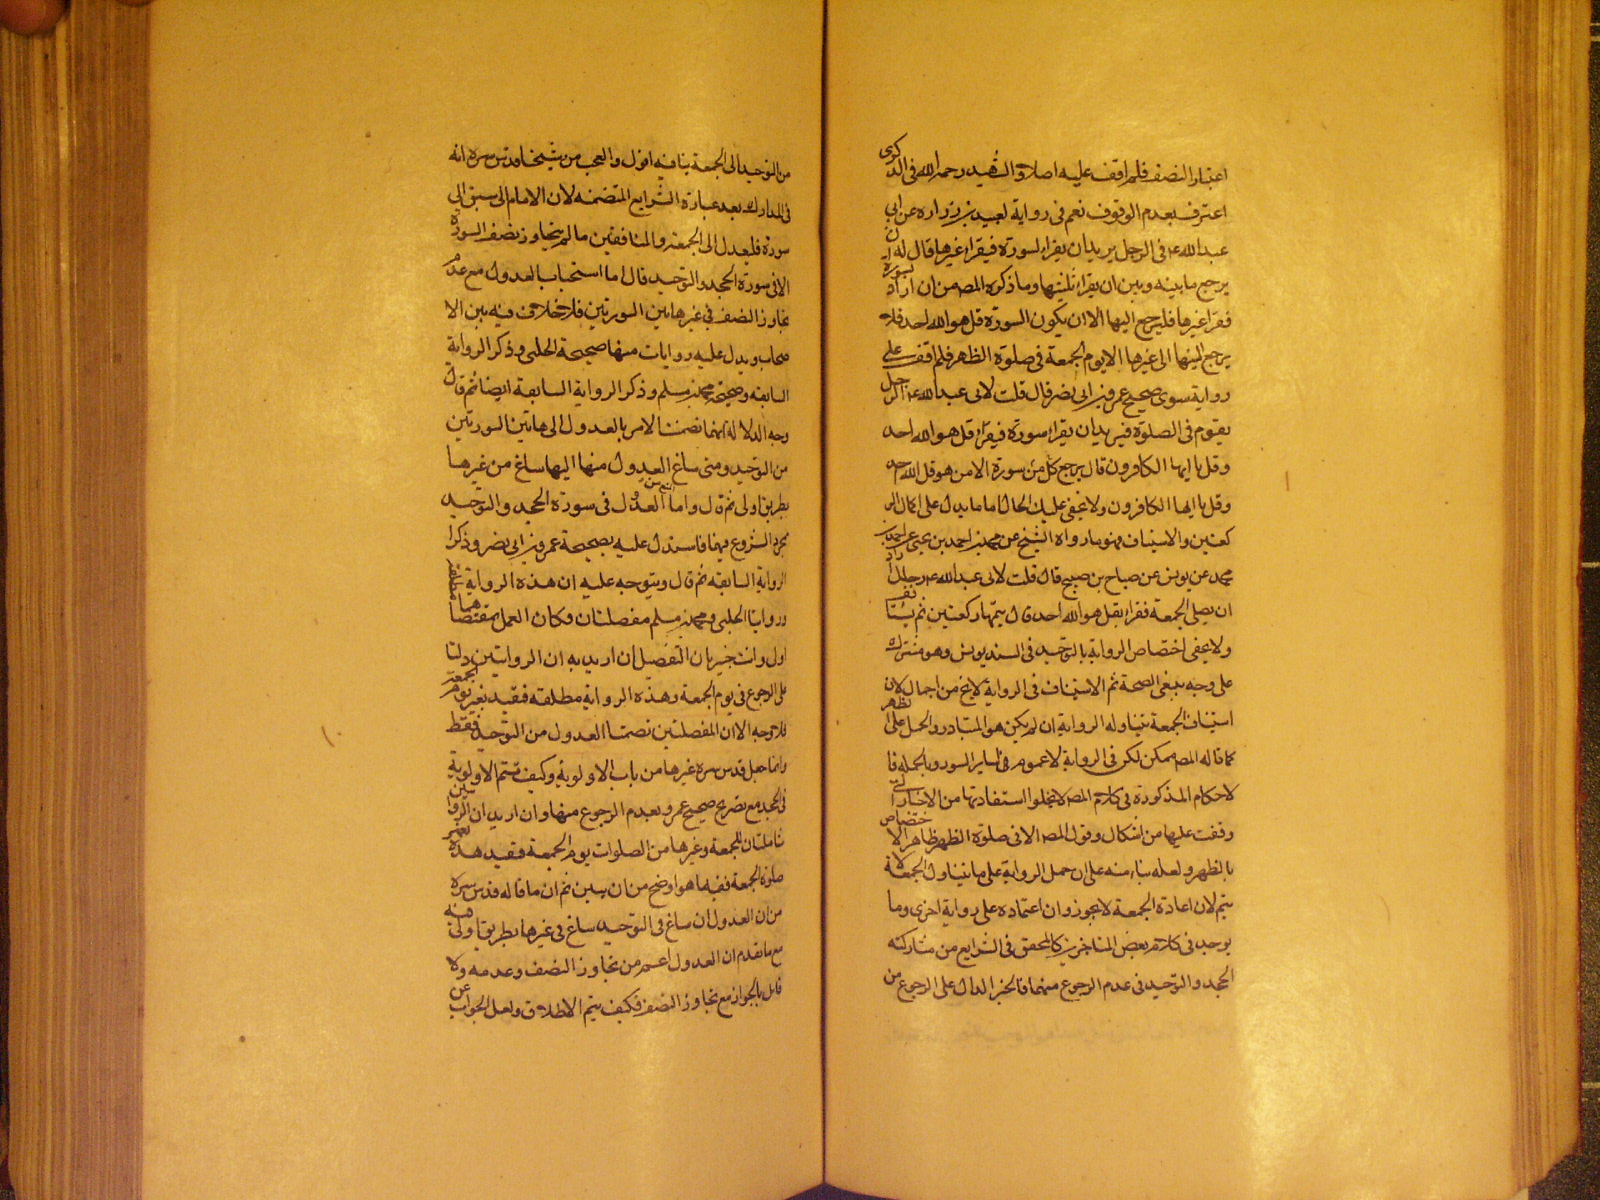 اعتبار النصف فلم اقف عليه اصلا والشهيد رحمه الله فى الذكرى
اعترف بعدم الوقوف نعم فى رواية لعبيد بن زراره عن ابى
عبد الله ع فى الرجل يريد ان يقراء السورة فيقراء غيرها قال له ان
يرجع ما بينه وبين ان يقراء ثلثيها وما ذكره المص من ان اراد سورة
فقرا غيرها فليرجع اليها الا ان يكون السورة قل هو الله احد فلا
يرجع منها الى غيرها الا يوم الجمعة فى صلوة الظهر فلم اقف على
رواية سوى صحيح عمرو بن ابى نصر قال قلت لابى عبد الله ع الرجل
يقوم فى الصلوة فيريد ان يقراء سورة فيقراء قل هو الله احد
وقل يا ايها الكافرون قال يرجع كل من سورة الا من هو قل الله احد
وقل يا ايها الكافرون ولا يخفى عليك الحال اما ما يدل على اكمال الر
كعتين والاستيناف فهو ما رواه الشيخ عن محمد بن احمد بن يحيى عن احمد بن
محمد عن يونس عن صباح بن صبيح قال قلت لابى عبد الله ع رجل اراد
ان يصلى الجمعة فقراء بقل هو الله احد قال يتمها ركعتين ثم يستانف
ولا يخفى اختصاص الرواية بالتوحيد فى السند يونس وهو مشترك
على وجه ينبغى الصحة ثم الاستيناف فى الرواية لا يخ من اجمال لان
استيناف الجمعة يتناوله الرواية ان لم يكن هو المتبادر والحمل على الظهر
كما قاله المص ممكن لكن فى الرواية لا عموم فى ساير السور وبالجملة فا
لاحكام المذكورة فى كلام المص لا يخلوا استفادتها من الاخبار التى
وقفت عليها من اشكال وقول المص الا فى صلوة الظهر ظاهر الاختصاص
بالظهر ولعله بناء منه على ان حمل الرواية على ما يتناول الجمعة لا
يتم لان اعادة الجمعة لا يجوز وان اعتماده على رواية اخرى وما
يوجد فى كلام بعض المتاخرين كالمحقق فى الشرايع من مشاركته
الجحد والتوحيد فى عدم الرجوع منهما فالخبر الدال على الرجوع من
من التوحيد الى الجمعة ينافيه اقول والعجب من شيخنا قدس سره انه
فى المدارك بعد عبارة الشرايع المتضمنه لان الامام الى سبق الى
سورة فليعدل الى الجمعة والمنافقين ما لم يتجاوز نصف السورة
الا فى سورة الجحد والتوحيد قال اما استحباب العدول مع عدم
تجاوز النصف فى غير هاتين السورتين فلا خلاف فيه بين الا
صحاب ويدل عليه روايات منها صحيحة الحلبى وذكر الرواية
السابقه وصحيحة محمد بن مسلم وذكر الرواية السابقة ايضا ثم قال
وجه الدلالة انهما تضمنتا الامر بالعدول الى هاتين السورتين
من التوحيد ومتى ساغ العدول منها اليها ساغ من غيرها
بطريق اولى ثم قال واما المنع من العدول فى سورة الجحد والتوحيد
بمجرد الشروع فيهما فاستدل عليه بصحيحة عمرو بن ابى نصر وذكرا
الرواية السابقه ثم قال ويتوجه عليه ان هذه الرواية مطلقة
وروايتا الحلبى ومحمد بن مسلم مفصلتان وكان العمل بمقتضاهما
اولى وانت خبير بان التفصيل ان اريد به ان الروايتين دلتا
على الرجوع فى يوم الجمعة وهذه الرواية مطلقه فقيد بغير يوم الجمعة
فلا وجه الا ان المفصلتين تضمنتا العدول من التوحيد فقط
وانما جعل قدس سره غيرها من باب الاولوية وكيف تتم الاولوية
فى الجحد مع تصريح صحيح عمرو بعدم الرجوع منها وان اريد ان الروايتين
شاملتان للجمعة وغيرها من الصلوات يوم الجمعة فقيد هذه بغير
صلوة الجمعة ففيه ما هو اوضح من ان يبين ثم ان ما قاله قدس سره
من ان العدول ان ساغ فى التوحيد ساغ فى غيرها بطريق اولى فيه
مع ما تقدم ان العدول اعم من تجاوز النصف وعدمه ولا
قايل بالجواز مع تجاوز النصف فكيف يتم الاطلاق ولعل الجواب عن